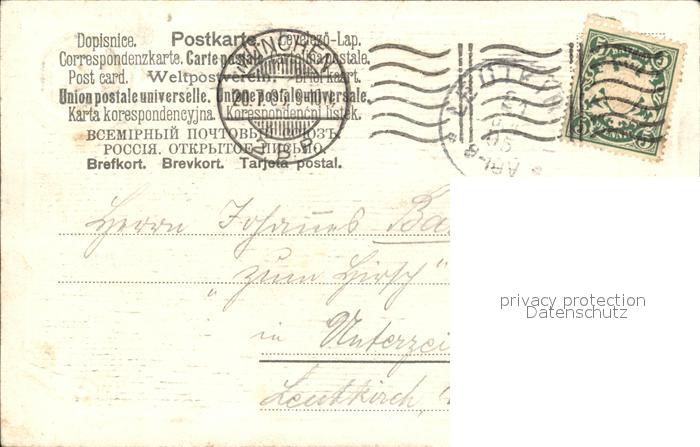 Dopisnice. Postkarte. Levelező-Lap.
Correspondenzkarte. Carte postale. Cartolina postale.
Post card. Weltpostverein. Briefkaart.
Union postale universelle. Unione postale universale.
Karta korespondencyjna. Korespondenční lístek.
ВСЕМІРНЫЙ ПОЧТОВЫЙ СОЮЗЪ
РОССІЯ. ОТКРЫТОЕ ПИСЬМО.
Brefkort. Brevkort. Tarjeta postal.
MÜNCHEN
LEUTK
5 5
Herrn Johannes Ba
"zum Hirsch"
in Unterzei
Leutkirch,
privacy protection
Datenschutz